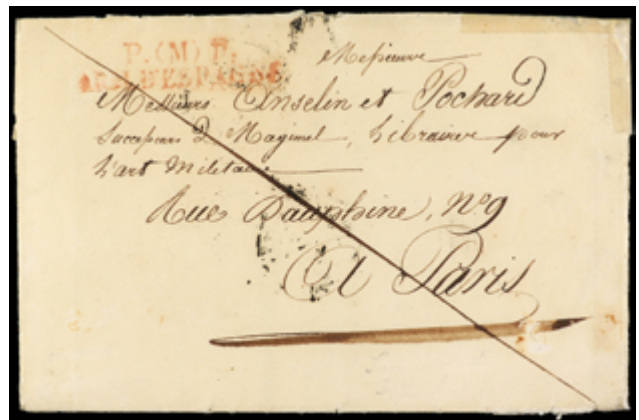 P. (M) P.
ARM. D'ESPAGNE
Messieurs
Messieurs Anselin et Pochard
Successeurs de Magimel, Libraire pour
L'art Militaire
Rue Dauphine, No 9
A Paris